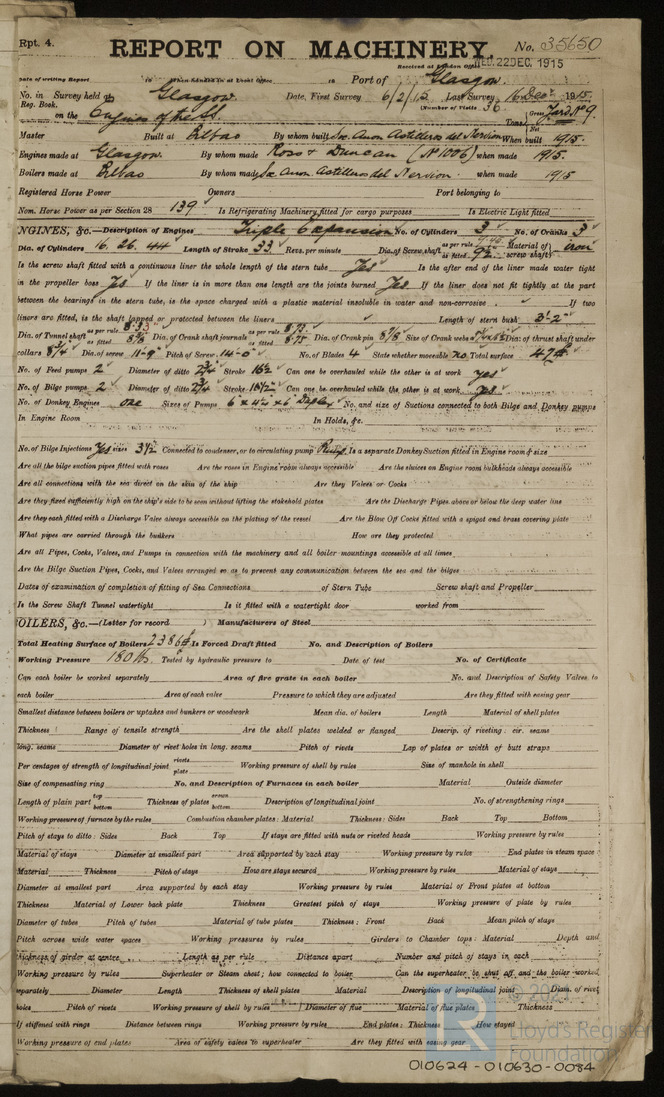 Rpt. 4. REPORT ON MACHINERY. No. 35650
Received at London Office WED. 22 DEC. 1915
Date of writing Report 19 When handed in at Local Office 19 Port of Glasgow
No. in Reg. Book. Survey held at Glasgow Date, First Survey 6/2/15 Last Survey 16 Decr 1915.
(Number of Visits 36
on the Engines of the SS. Tons Gross Net Yard No 9.
Master Built at Bilbao By whom built Soc. Anon. Astilleros del Nervion When built 1915.
Engines made at Glasgow. By whom made Ross & Duncan (No 1006) when made 1915.
Boilers made at Bilbao By whom made Soc Anon. Astilleros del Nervion. when made 1915
Registered Horse Power Owners Port belonging to
Nom. Horse Power as per Section 28 139 Is Refrigerating Machinery fitted for cargo purposes Is Electric Light fitted
NGINES, &c.—Description of Engines Triple Expansion No. of Cylinders 3 No. of Cranks 3
Dia. of Cylinders 16. 26. 44 Length of Stroke 33 Revs. per minute Dia. of Screw shaft as per rule as fitted 9½ Material of screw shaft iron
Is the screw shaft fitted with a continuous liner the whole length of the stern tube Yes Is the after end of the liner made water tight
in the propeller boss Yes If the liner is in more than one length are the joints burned Yes If the liner does not fit tightly at the part
between the bearings in the stern tube, is the space charged with a plastic material insoluble in water and non-corrosive If two
liners are fitted, is the shaft lapped or protected between the liners Length of stern bush 3'-2"
Dia. of Tunnel shaft as per rule 8.33" as fitted 8⅝ Dia. of Crank shaft journals as per rule 8.73 as fitted 8.75 Dia. of Crank pin 8⅞ Size of Crank webs Dia. of thrust shaft under
collars 8¾ Dia. of screw 11-9" Pitch of Screw 14-0" No. of Blades 4 State whether moveable no Total surface 47
No. of Feed pumps 2 Diameter of ditto 2¾ Stroke 16½ Can one be overhauled while the other is at work yes
No. of Bilge pumps 2 Diameter of ditto 2¾ Stroke 16½ Can one be overhauled while the other is at work yes
No. of Donkey Engines one Sizes of Pumps 6 x 4½ x 6 Duplex No. and size of Suctions connected to both Bilge and Donkey pumps
In Engine Room In Holds, &c.
No. of Bilge Injections Yes sizes 3½ Connected to condenser, or to circulating pump Is a separate Donkey Suction fitted in Engine room & size
Are all the bilge suction pipes fitted with roses Are the roses in Engine room always accessible Are the sluices on Engine room bulkheads always accessible
Are all connections with the sea direct on the skin of the ship Are they Valves or Cocks
Are they fixed sufficiently high on the ship's side to be seen without lifting the stokehold plates Are the Discharge Pipes above or below the deep water line
Are they each fitted with a Discharge Valve always accessible on the plating of the vessel Are the Blow Off Cocks fitted with a spigot and brass covering plate
What pipes are carried through the bunkers How are they protected
Are all Pipes, Cocks, Valves, and Pumps in connection with the machinery and all boiler mountings accessible at all times
Are the Bilge Suction Pipes, Cocks, and Valves arranged so as to prevent any communication between the sea and the bilges
Dates of examination of completion of fitting of Sea Connections of Stern Tube Screw shaft and Propeller
Is the Screw Shaft Tunnel watertight Is it fitted with a watertight door worked from
OILERS, &c.—(Letter for record ) Manufacturers of Steel
Total Heating Surface of Boilers 2386 Is Forced Draft fitted No. and Description of Boilers
Working Pressure 180 lb. Tested by hydraulic pressure to Date of test No. of Certificate
Can each boiler be worked separately Area of fire grate in each boiler No. and Description of Safety Valves to
each boiler Area of each valve Pressure to which they are adjusted Are they fitted with easing gear
Smallest distance between boilers or uptakes and bunkers or woodwork Mean dia. of boilers Length Material of shell plates
Thickness Range of tensile strength Are the shell plates welded or flanged Descrip. of riveting: cir. seams
long. seams Diameter of rivet holes in long. seams Pitch of rivets Lap of plates or width of butt straps
Per centages of strength of longitudinal joint rivets plate Working pressure of shell by rules Size of manhole in shell
Size of compensating ring No. and Description of Furnaces in each boiler Material Outside diameter
Length of plain part top bottom Thickness of plates crown bottom Description of longitudinal joint No. of strengthening rings
Working pressure of furnace by the rules Combustion chamber plates: Material Thickness: Sides Back Top Bottom
Pitch of stays to ditto: Sides Back Top If stays are fitted with nuts or riveted heads Working pressure by rules
Material of stays Diameter at smallest part Area supported by each stay Working pressure by rules End plates in steam space
Material Thickness Pitch of stays How are stays secured Working pressure by rules Material of stays
Diameter at smallest part Area supported by each stay Working pressure by rules Material of Front plates at bottom
Thickness Material of Lower back plate Thickness Greatest pitch of stays Working pressure of plate by rules
Diameter of tubes Pitch of tubes Material of tube plates Thickness: Front Back Mean pitch of stays
Pitch across wide water spaces Working pressures by rules Girders to Chamber tops: Material Depth and
thickness of girder at centre Length as per rule Distance apart Number and pitch of stays in each
Working pressure by rules Superheater or Steam chest; how connected to boiler Can the superheater be shut off and the boiler worked
separately Diameter Length Thickness of shell plates Material Description of longitudinal joint Diam. of rivet
holes Pitch of rivets Working pressure of shell by rules Diameter of flue Material of flue plates Thickness
If stiffened with rings Distance between rings Working pressure by rules End plates: Thickness How stayed
Working pressure of end plates Area of safety valves to superheater Are they fitted with easing gear
© 202
Lloyd's Register
Foundation
010624-010630-0084